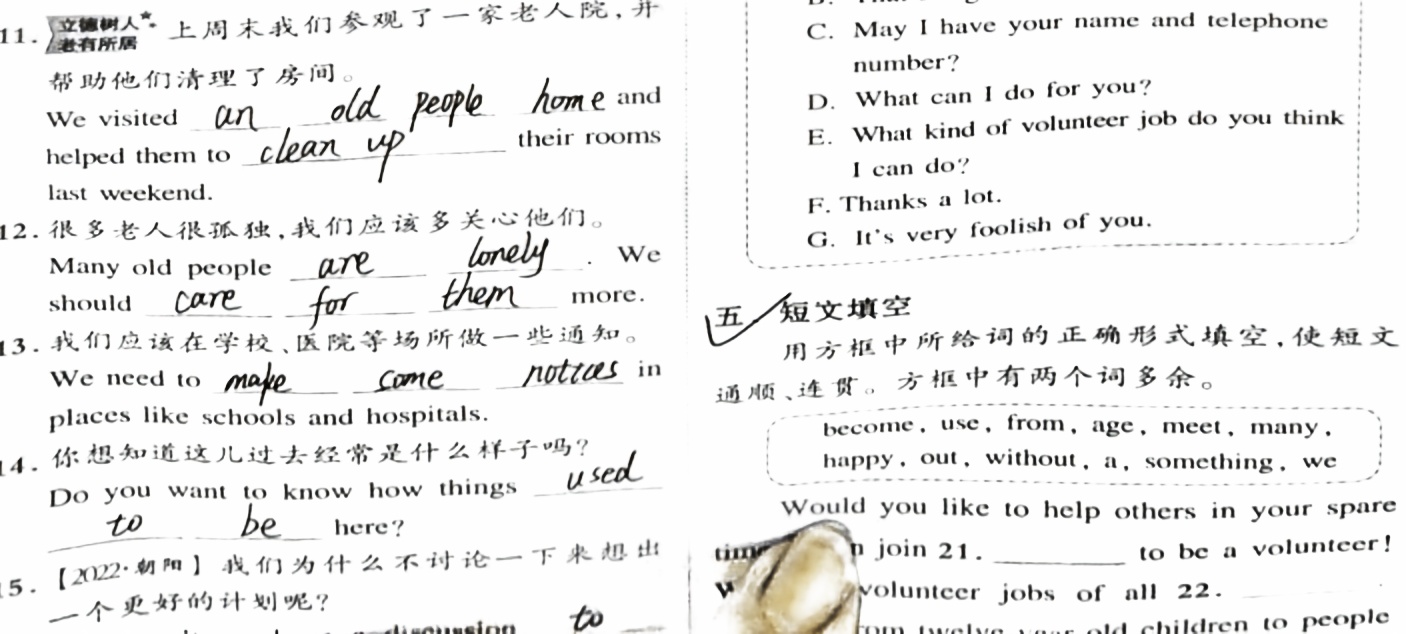 11. 立德树人 老有所居 上周末我们参观了一家老人院,并
帮助他们清理了房间。
We visited an old people home and
helped them to clean up their rooms
last weekend.
12. 很多老人很孤独,我们应该多关心他们。
Many old people are lonely. We
should care for them more.
13. 我们应该在学校、医院等场所做一些通知。
We need to make some notices in
places like schools and hospitals.
14. 你想知道这儿过去经常是什么样子吗?
Do you want to know how things used
to be here?
15. 【2022·朝阳】我们为什么不讨论一下来想出
一个更好的计划呢?
discussion to
C. May I have your name and telephone
number?
D. What can I do for you?
E. What kind of volunteer job do you think
I can do?
F. Thanks a lot.
G. It's very foolish of you.
五、短文填空
用方框中所给词的正确形式填空,使短文
通顺、连贯。方框中有两个词多余。
become, use, from, age, meet, many,
happy, out, without, a, something, we
Would you like to help others in your spare
time join 21. to be a volunteer!
volunteer jobs of all 22.
twelve year old children to people